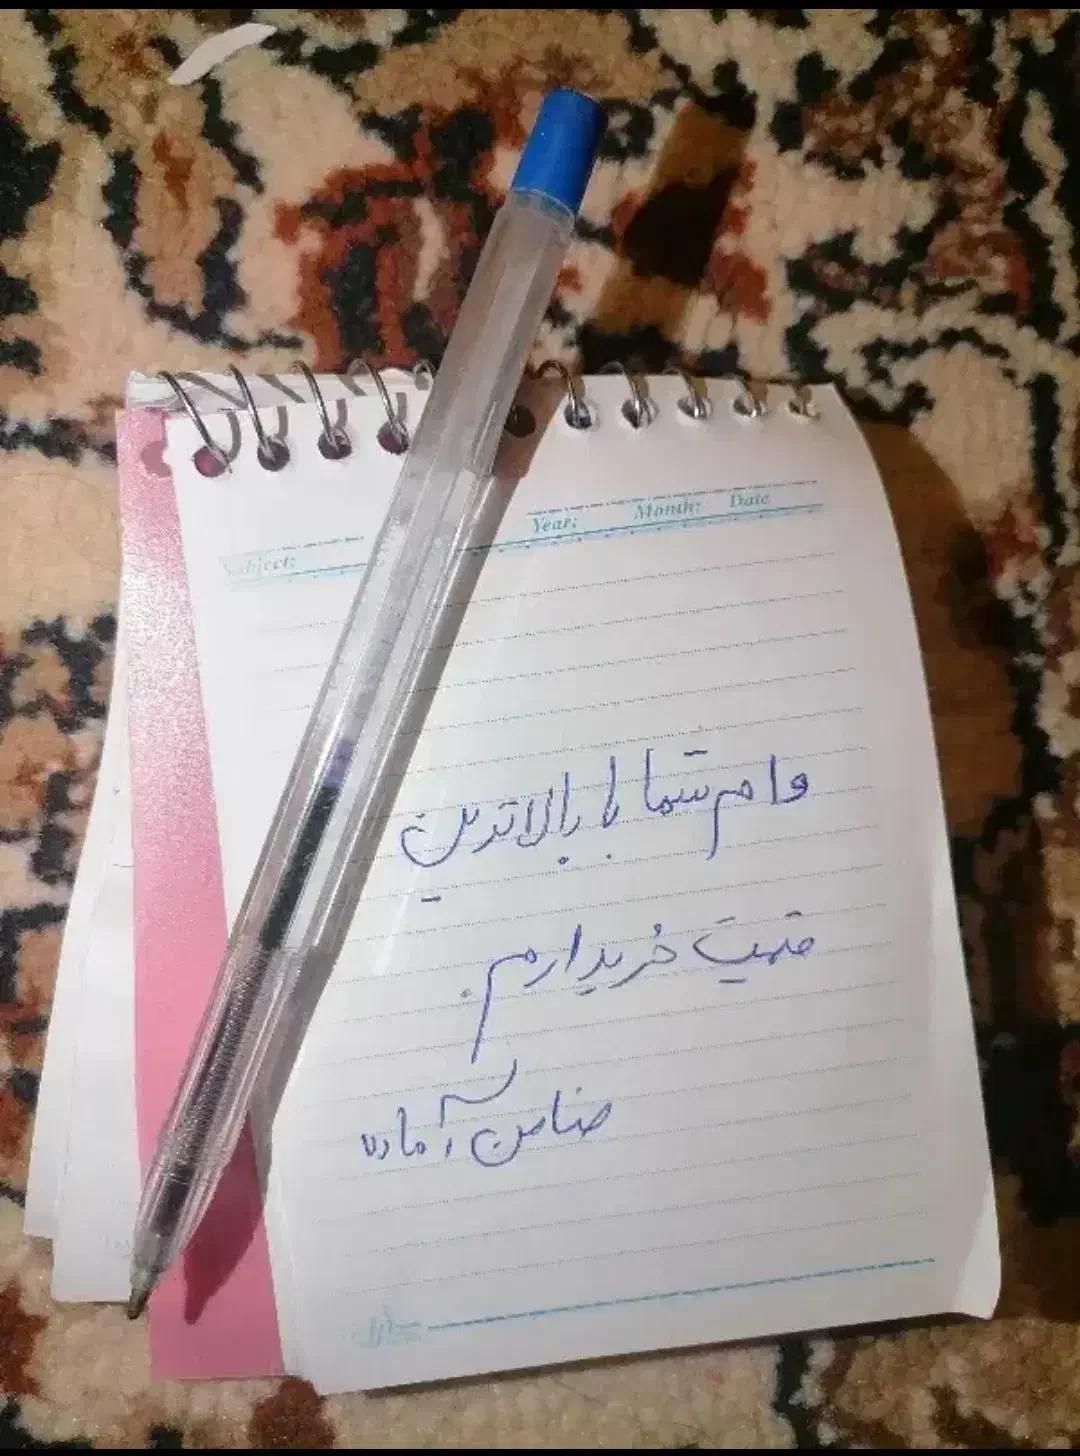 Year: Month: Date
Subject:
وام شما با بالاترین
قیمت خریدارم.
ضامن آماده